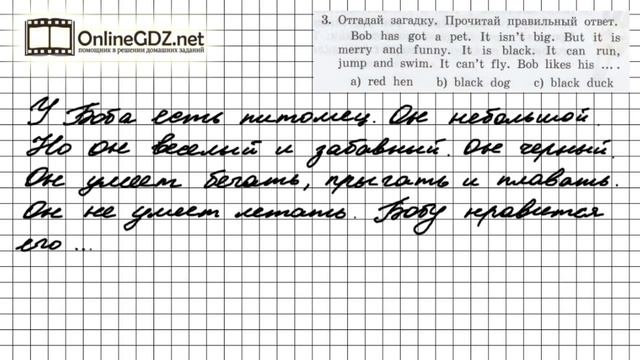 OnlineGDZ.net
помощник в решении домашних заданий
3. Отгадай загадку. Прочитай правильный ответ.
Bob has got a pet. It isn't big. But it is
merry and funny. It is black. It can run,
jump and swim. It can't fly. Bob likes his ... .
a) red hen b) black dog c) black duck
У Боба есть питомец. Он небольшой.
Но он веселый и забавный. Он черный.
Он умеет бегать, прыгать и плавать.
Он не умеет летать. Бобу нравится
его ...